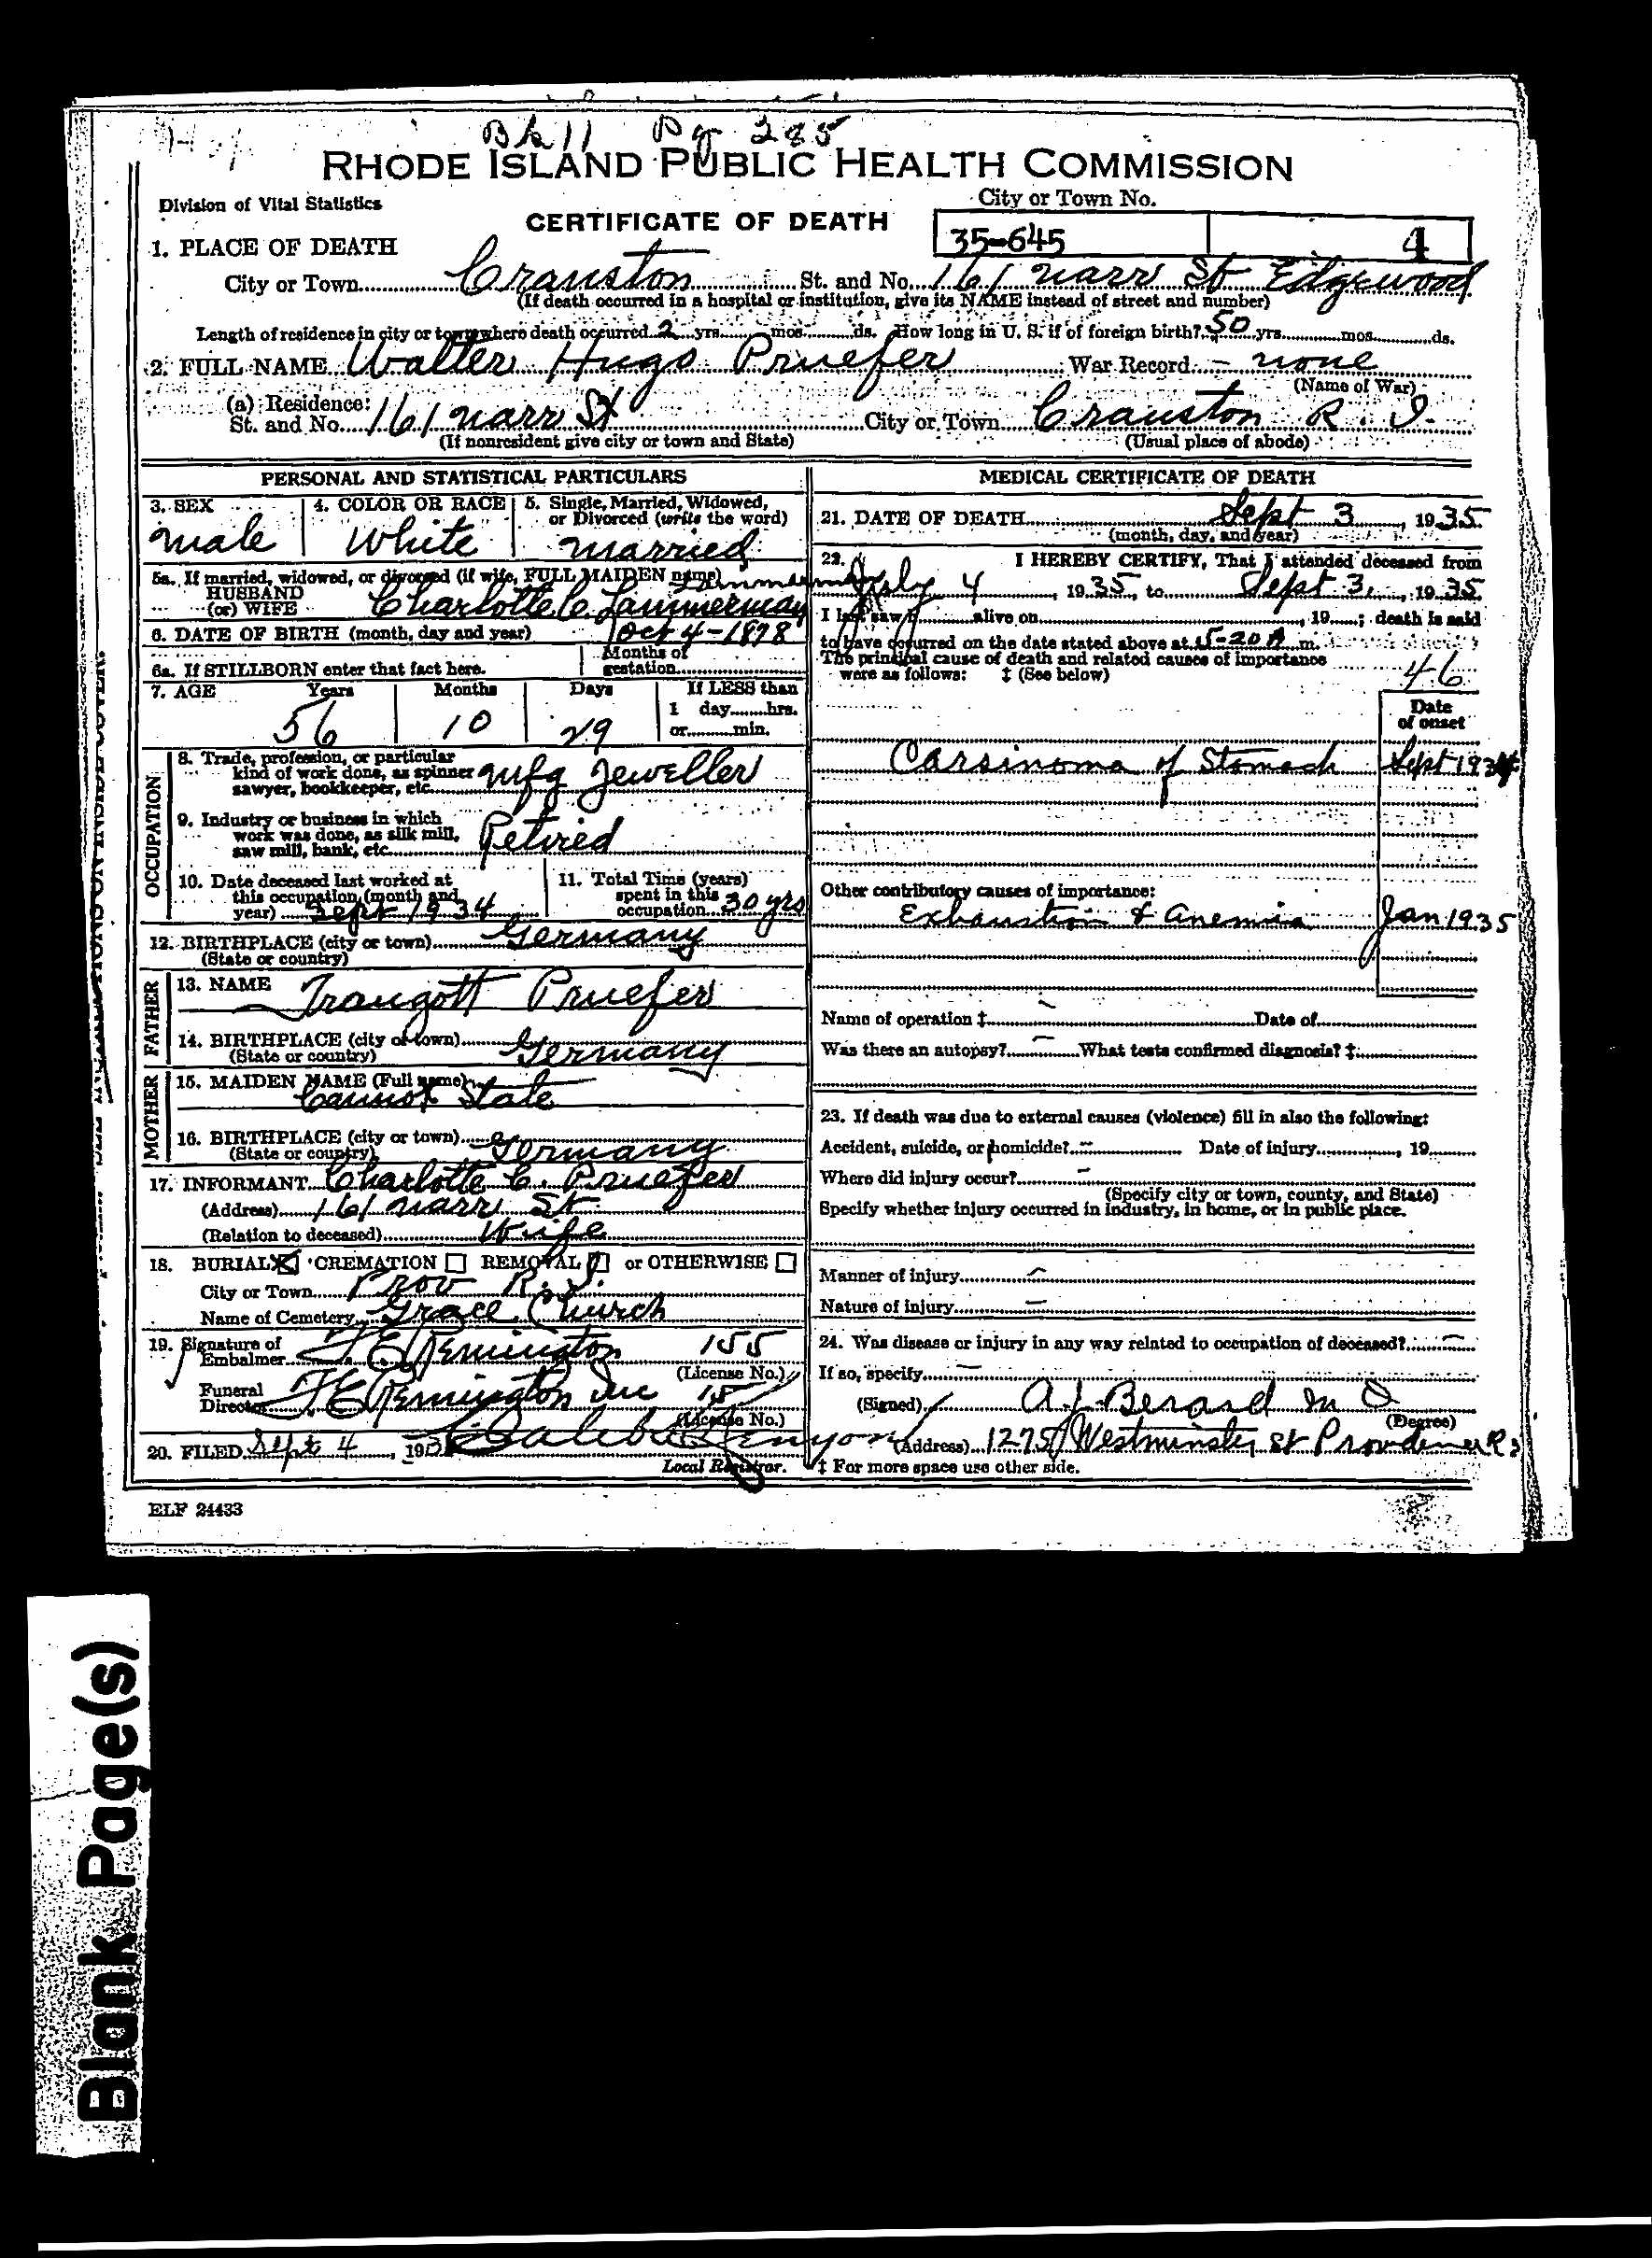 Bk 11 Pg 285
RHODE ISLAND PUBLIC HEALTH COMMISSION
Division of Vital Statistics
City or Town No.
CERTIFICATE OF DEATH
35-645 4
1. PLACE OF DEATH
City or Town Cranston St. and No. 161 Narr St Edgewood
(If death occurred in a hospital or institution, give its NAME instead of street and number)
Length of residence in city or town where death occurred 2 yrs. mos. ds. How long in U. S. if of foreign birth? 50 yrs. mos. ds.
2. FULL NAME Walter Hugo Pruefer War Record - none
(Name of War)
(a) Residence:
St. and No. 161 Narr St City or Town Cranston R. I.
(If nonresident give city or town and State) (Usual place of abode)
PERSONAL AND STATISTICAL PARTICULARS
3. SEX 4. COLOR OR RACE 5. Single, Married, Widowed,
or Divorced (write the word)
male White married
5a. If married, widowed, or divorced (if wife, FULL MAIDEN name)
HUSBAND
(or) WIFE Charlotte C. Lammerman
6. DATE OF BIRTH (month, day and year) Oct 4-1878
6a. If STILLBORN enter that fact here. Months of
gestation
7. AGE Years Months Days If LESS than
1 day hrs.
or min.
56 10 29
OCCUPATION
8. Trade, profession, or particular
kind of work done, as spinner
sawyer, bookkeeper, etc. Mfg Jeweller
9. Industry or business in which
work was done, as silk mill,
saw mill, bank, etc. Retired
10. Date deceased last worked at
this occupation (month and
year) Sept 1934
11. Total Time (years)
spent in this
occupation 30 yrs
12. BIRTHPLACE (city or town) Germany
(State or country)
FATHER
13. NAME Traugott Pruefer
14. BIRTHPLACE (city or town)
(State or country) Germany
MOTHER
15. MAIDEN NAME (Full name)
Cannot State
16. BIRTHPLACE (city or town)
(State or country) Germany
17. INFORMANT Charlotte C. Pruefer
(Address) 161 Narr St
(Relation to deceased) Wife
18. BURIAL CREMATION REMOVAL or OTHERWISE
City or Town Prov R. I.
Name of Cemetery Grace Church
19. Signature of
Embalmer T E Remington 155
(License No.)
Funeral
Director T E Remington Inc 15
(License No.)
20. FILED Sept 4, 193 Caleb Kenyon
Local Registrar.
MEDICAL CERTIFICATE OF DEATH
21. DATE OF DEATH Sept 3, 1935
(month, day, and year)
22. I HEREBY CERTIFY, That I attended deceased from
July 4, 1935, to Sept 3, 1935
I last saw h alive on , 19 ; death is said
to have occurred on the date stated above at 5-20 A m.
The principal cause of death and related causes of importance
were as follows: ‡ (See below)
46
Date
of onset
Carsinoma of Stomach Sept 1934
Other contributory causes of importance:
Exhaustion & Anemia Jan 1935
Name of operation ‡ - Date of
Was there an autopsy? - What tests confirmed diagnosis? ‡
23. If death was due to external causes (violence) fill in also the following:
Accident, suicide, or homicide? - Date of injury , 19
Where did injury occur? -
(Specify city or town, county, and State)
Specify whether injury occurred in industry, in home, or in public place.
Manner of injury -
Nature of injury -
24. Was disease or injury in any way related to occupation of deceased? -
If so, specify -
(Signed) A. J. Berard M D
(Degree)
(Address) 1275 Westminster St Providence R I
‡ For more space use other side.
ELF 24433
Blank Page(s)